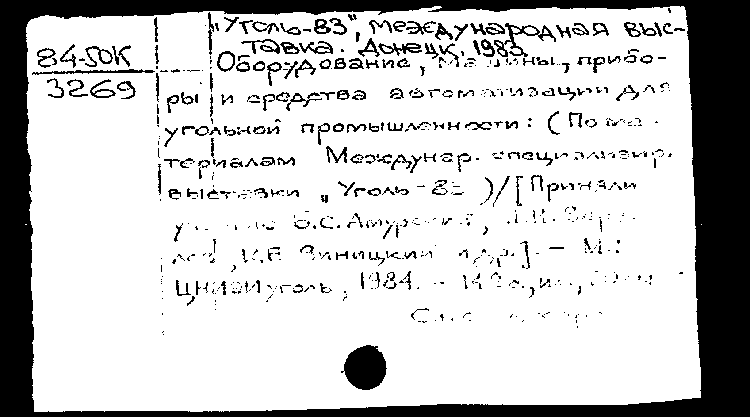 „Уголь-83", Международная выс-
тавка. Донецк, 1983
84-50К
3269
Оборудование, машины, прибо-
ры и средства автоматизации для
угольной промышленности: (По ма-
териалам Междунар. специализир.
выставки „Уголь-83)/[Приняли
Б.С. Амурский,
И.Е. Виницкий и др.]. - М.:
ЦНИЭИуголь, 1984. - 142с.,